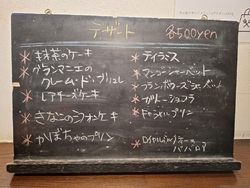 デザート 各500yen
* 抹茶のケーキ
* グランマニエの
クレーム・ド・ブリュレ
* レアチーズケーキ
* きなこのシフォンケーキ
* かぼちゃのプリン
* ティラミス
* マンゴーシャーベット
* フランボワーズシャーベット
* ガトーショコラ
* キャラメルプリン
* ロイヤルミルクティーの
ババロア